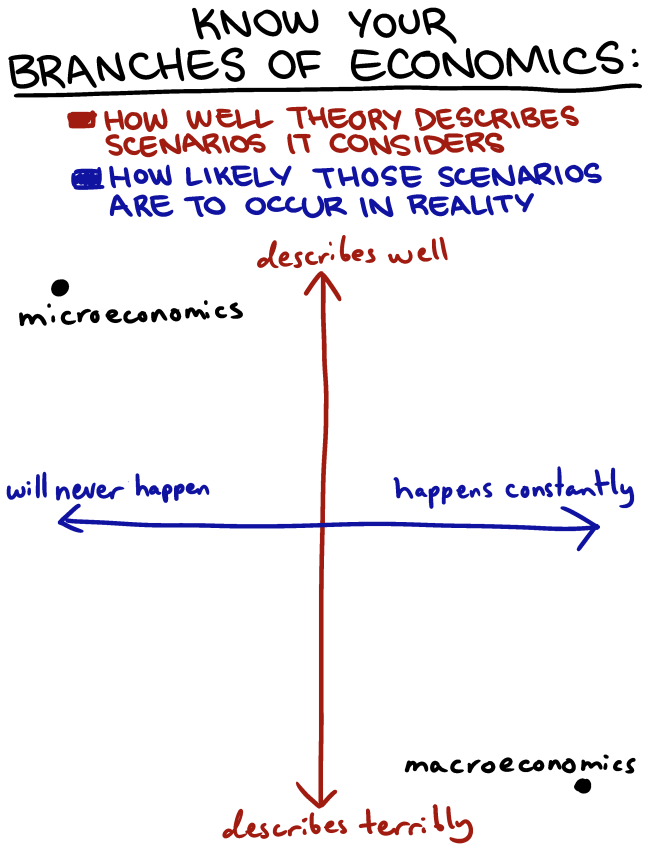 KNOW YOUR
BRANCHES OF ECONOMICS:
HOW WELL THEORY DESCRIBES
SCENARIOS IT CONSIDERS
HOW LIKELY THOSE SCENARIOS
ARE TO OCCUR IN REALITY
describes well
microeconomics
will never happen
happens constantly
macroeconomics
describes terribly